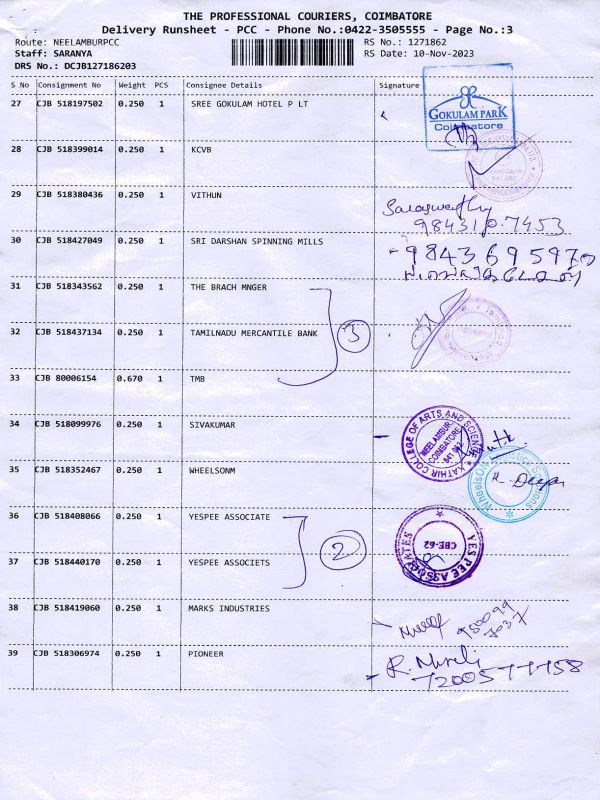 THE PROFESSIONAL COURIERS, COIMBATORE
Delivery Runsheet - PCC - Phone No.:0422-3505555 - Page No.:3
Route: NEELAMBURPCC RS No.: 1271862
Staff: SARANYA RS Date: 10-Nov-2023
DRS No.: DCJB127186203
S No Consignment No Weight PCS Consignee Details Signature
27 CJB 518197502 0.250 1 SREE GOKULAM HOTEL P LT
GOKULAM PARK
Coimbatore
28 CJB 518399014 0.250 1 KCVB
29 CJB 518380436 0.250 1 VITHUN
984310.7453
30 CJB 518427049 0.250 1 SRI DARSHAN SPINNING MILLS
31 CJB 518343562 0.250 1 THE BRACH MNGER
32 CJB 518437134 0.250 1 TAMILNADU MERCANTILE BANK
3
33 CJB 80006154 0.670 1 TMB
34 CJB 518099976 0.250 1 SIVAKUMAR
KATHIR COLLEGE OF ARTS AND SCIENCE
NEELAMBUR,
COIMBATORE
641 062
35 CJB 518352467 0.250 1 WHEELSONM
R. Deepa
36 CJB 518408066 0.250 1 YESPEE ASSOCIATE
2
YES PEE ASSOCIATES
CBE-62
37 CJB 518440170 0.250 1 YESPEE ASSOCIETS
38 CJB 518419060 0.250 1 MARKS INDUSTRIES
39 CJB 518306974 0.250 1 PIONEER
R. Murali